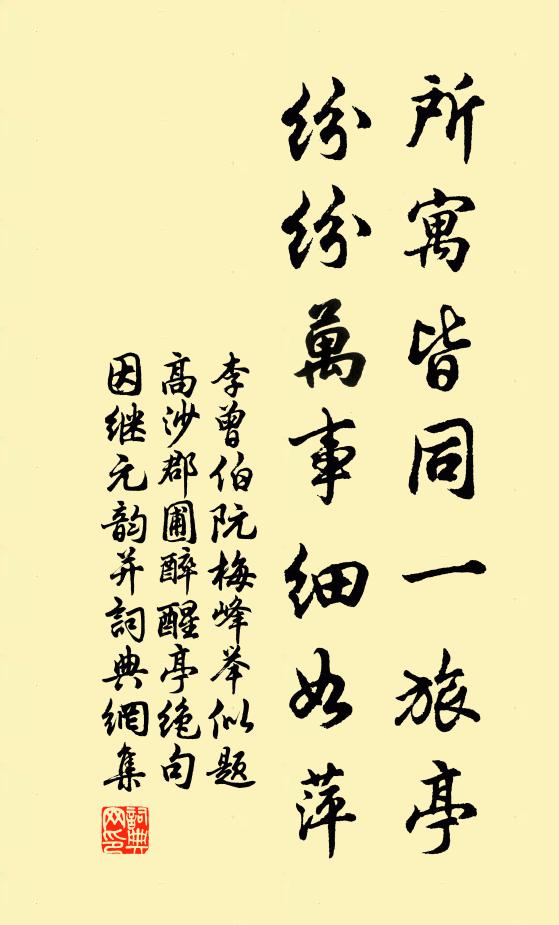 所寓皆同一旅亭
紛紛萬事細如萍
李曾伯阮梅峰举似题
高沙郡圃醉醒亭绝句
因继元韵并詞典網集
詞典网印